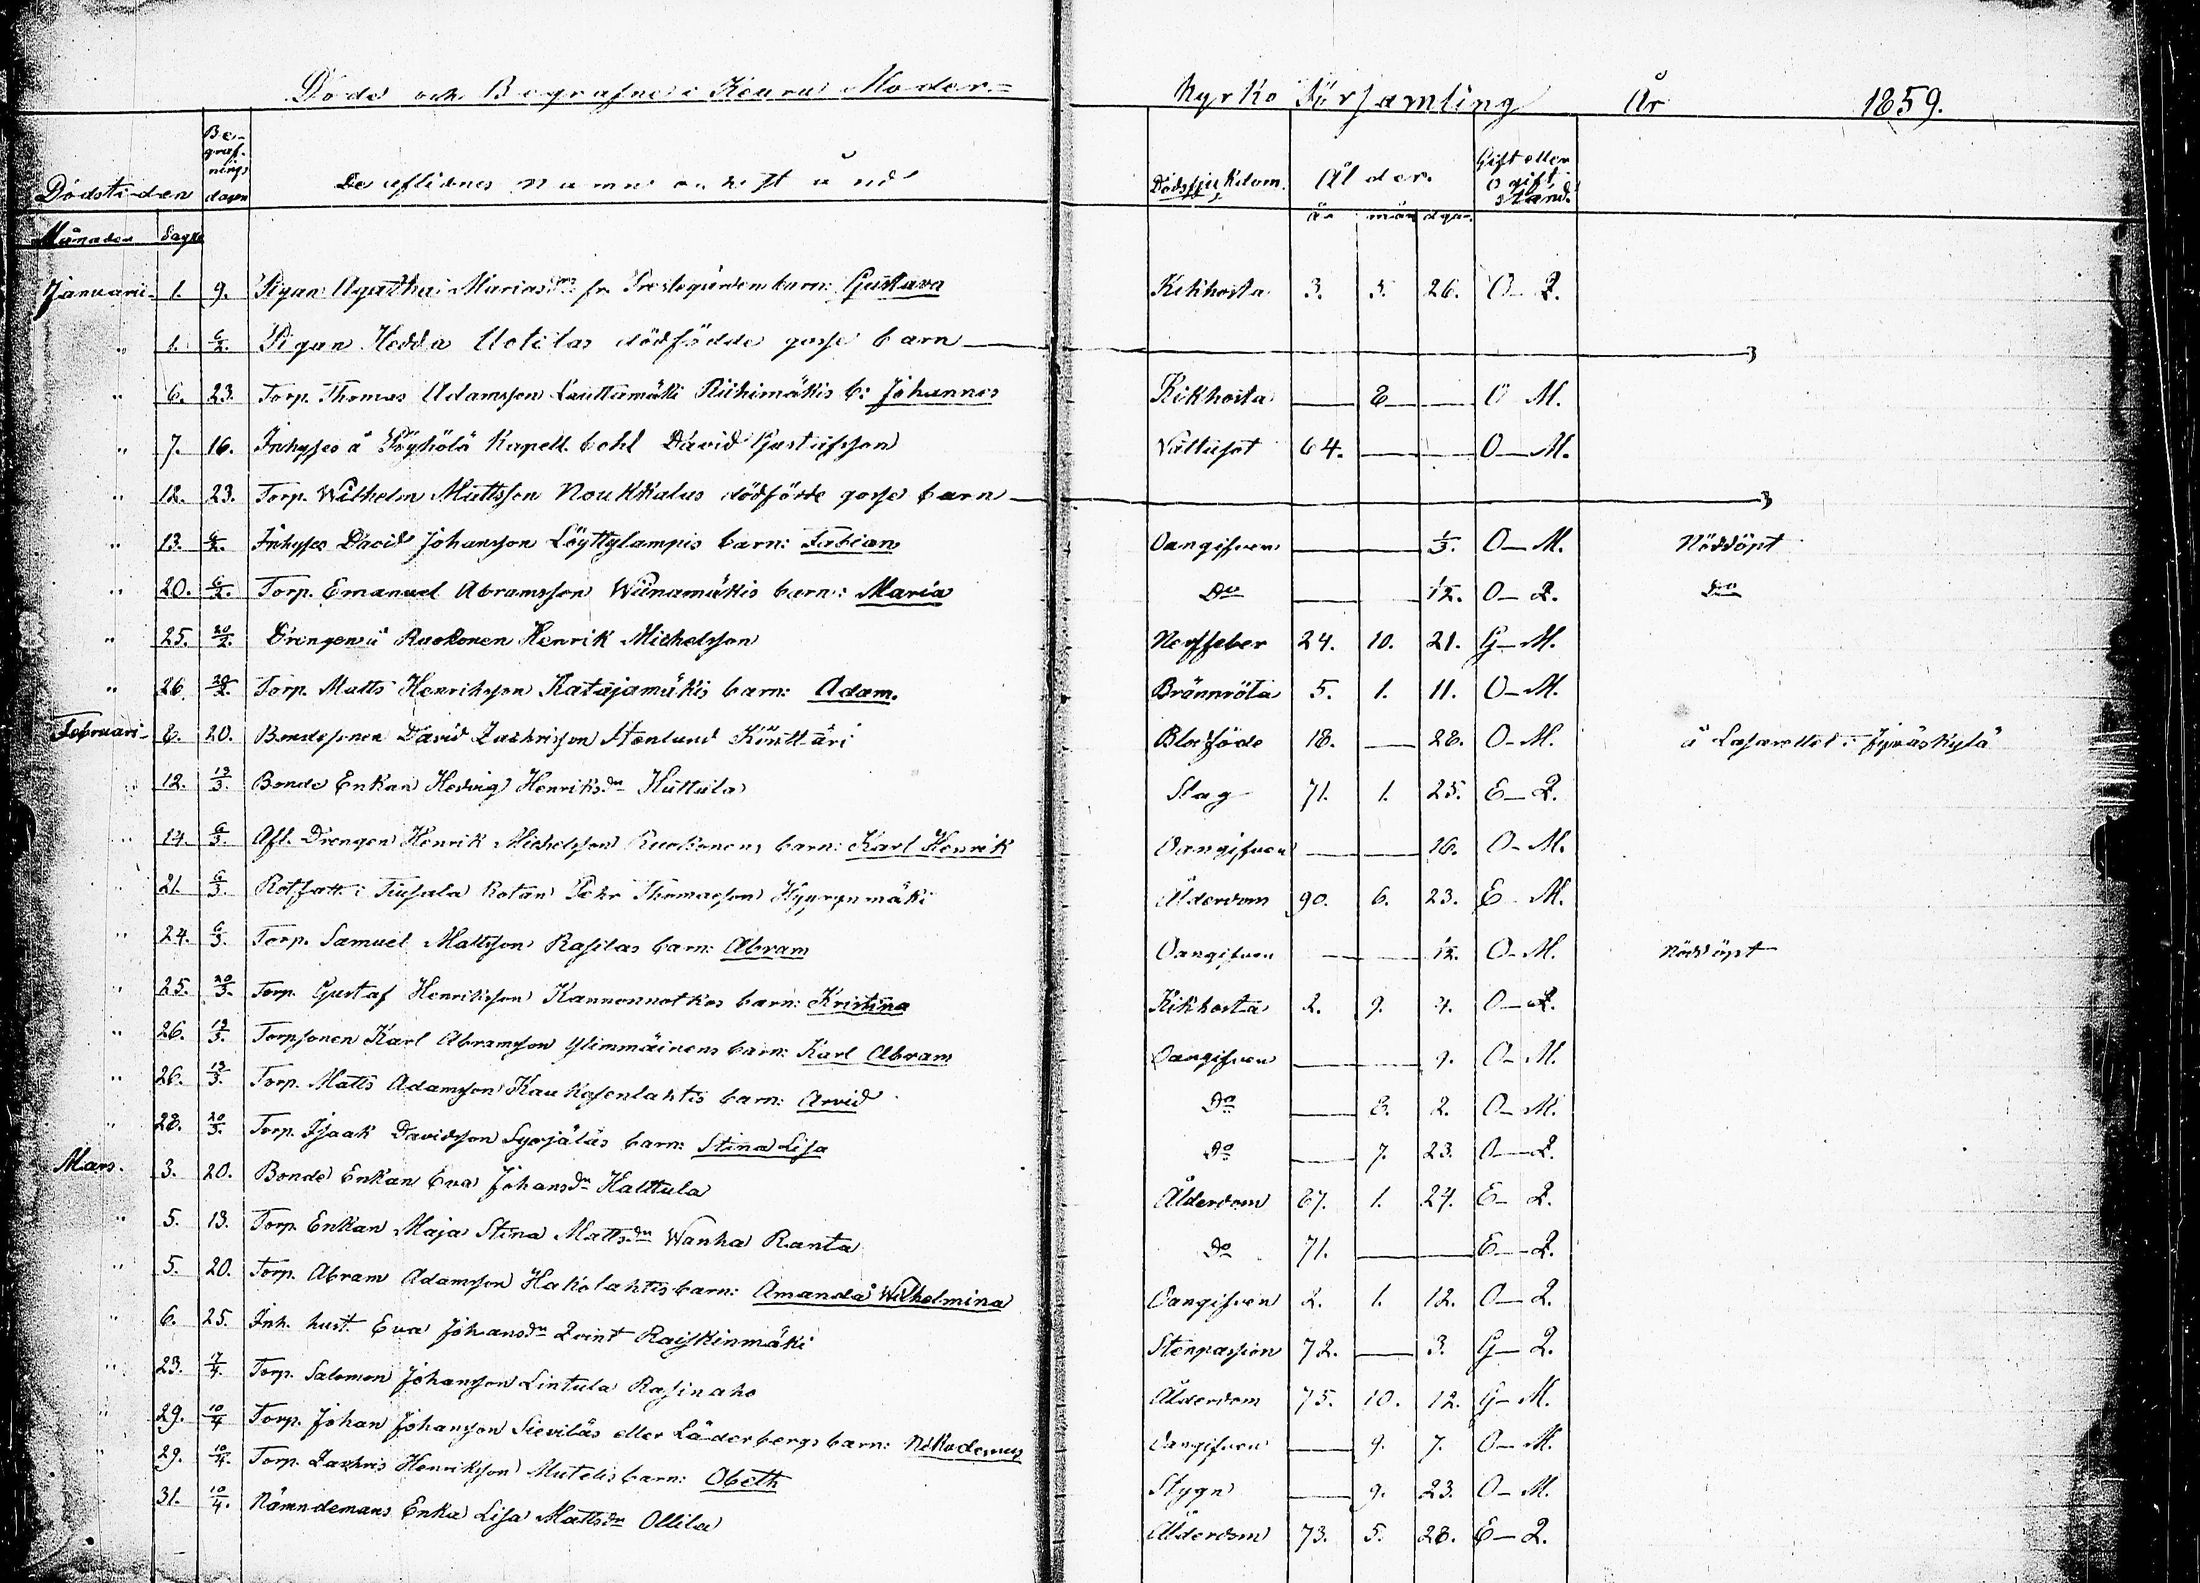 Döde och Begrafne i Keuru Moder= Kyrko Församling År 1859.
Dödstiden Be-graf-nings dagen De aflidnes namn och stånd Dödssjukdom. Ålder. Gift eller Ogift stånd.
Månader Dagar år mån dgar.
Januarii 1. 9. Pigan Agatha Mariasdr fr Prestegården barn: Gustava Kikhosta 3. 3. 26. O-Q.
" 1. 6/2. Pigan Hedda Uotilas dödfödde gosse barn
" 6. 23. Torp. Thomas Adamsson Lauttamäki Riihimäkis b: Johannes Kikhosta — 2 — O M.
" 7. 16. Inhyses å Pöyhölä Kapell. bohl David Gustafsson Vattusot 64. — — O-M.
" 12. 23. Torp. Wilhelm Mattsson Noukkalas dödfödde gosse barn
" 13. 6/2. Inhyses David Johansson Löyttylampis barn: Fabian Oangifven — — 1/3. O-M. Nöddöpt
" 20. 6/2. Torp. Emanuel Abramsson Wiinamäkis barn: Maria Do — — 1/2. O-Q. Do
" 25. 20/2. Drengen å Ruokonen Henrik Michelsson Nerffeber 24. 10. 21. G-M.
" 26. 20/2. Torp. Matts Henriksson Katajamäkis barn: Adam. Brännröta 5. 1. 11. O-M.
Februari 6. 20. Bondesonen David Zachrisson Stenlund Kinttäri Blodflöde 18. — 28. O-M. å Lasarettet i Jyväskylä
" 12. 13/3. Bonde Enkan Hedvig Henriksdr Huttula Slag 71. 1. 25. E-Q.
" 14. 6/3. Afl. Drengen Henrik Michelsson Ruokonens barn: Karl Henrik Oangifven — — 16. O-M.
" 21. 6/3. Rotfatt. i Tiusala Rotan Pehr Thomasson Hyyrynmäki Ålderdom 90. 6. 23. E-M.
" 24. 6/3. Torp. Samuel Mattsson Rasilas barn: Abram Oangifven — — 1/2. O-M. Nöddöpt
" 25. 20/3. Torp. Gustaf Henriksson Kannonnotkos barn: Kristina Kikhosta 2. 9. 4. O-Q.
" 26. 13/3. Torpsonen Karl Abramsson Ylimmäinens barn: Karl Abram Oangifven — — 9. O-M.
" 26. 13/3. Torp. Matts Adamsson Kaukasenlahtis barn: Arvid Do — 2. 2. O-M.
" 28. 20/3. Torp. Isaak Davidsson Syrjäläs barn: Stina Lisa Do — 7. 23. O-Q.
Mars. 3. 20. Bonde Enkan Eva Johansdr Halttula Ålderdom 67. 1. 24. E-Q.
" 5. 13. Torp. Enkan Maja Stina Mattsdr Wanha Ranta Do 71. — — E-Q.
" 5. 20. Torp. Abram Adamsson Hakolahtis barn: Amanda Wilhelmina Oangifven 2. 1. 12. O-Q.
" 6. 25. Inh. hust. Eva Johansdr Qvint Raiskinmäki Stenpassion 72. — 3. G-Q.
" 23. 17/4. Torp. Salomon Johansson Lintula Rasinaho Ålderdom 75. 10. 12. G-M.
" 29. 10/4. Torp. Johan Johansson Sieviläs eller Läderbergs barn: Nikodemus Oangifven — 9. 7. O-M.
" 29. 10/4. Torp. Zachris Henriksson Mutelis barn: Obeth Stygn — 9. 23. O-M.
31. 10/4. Nämndemans Enka Lisa Mattsdr Ollila Ålderdom 73. 5. 28. E-Q.